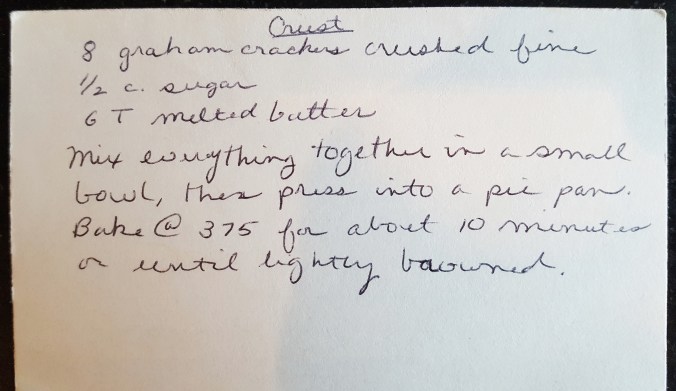 Crust
8 graham crackers crushed fine
1/2 c. sugar
6 T melted butter
Mix everything together in a small
bowl, then press into a pie pan.
Bake @ 375 for about 10 minutes
or until lightly browned.